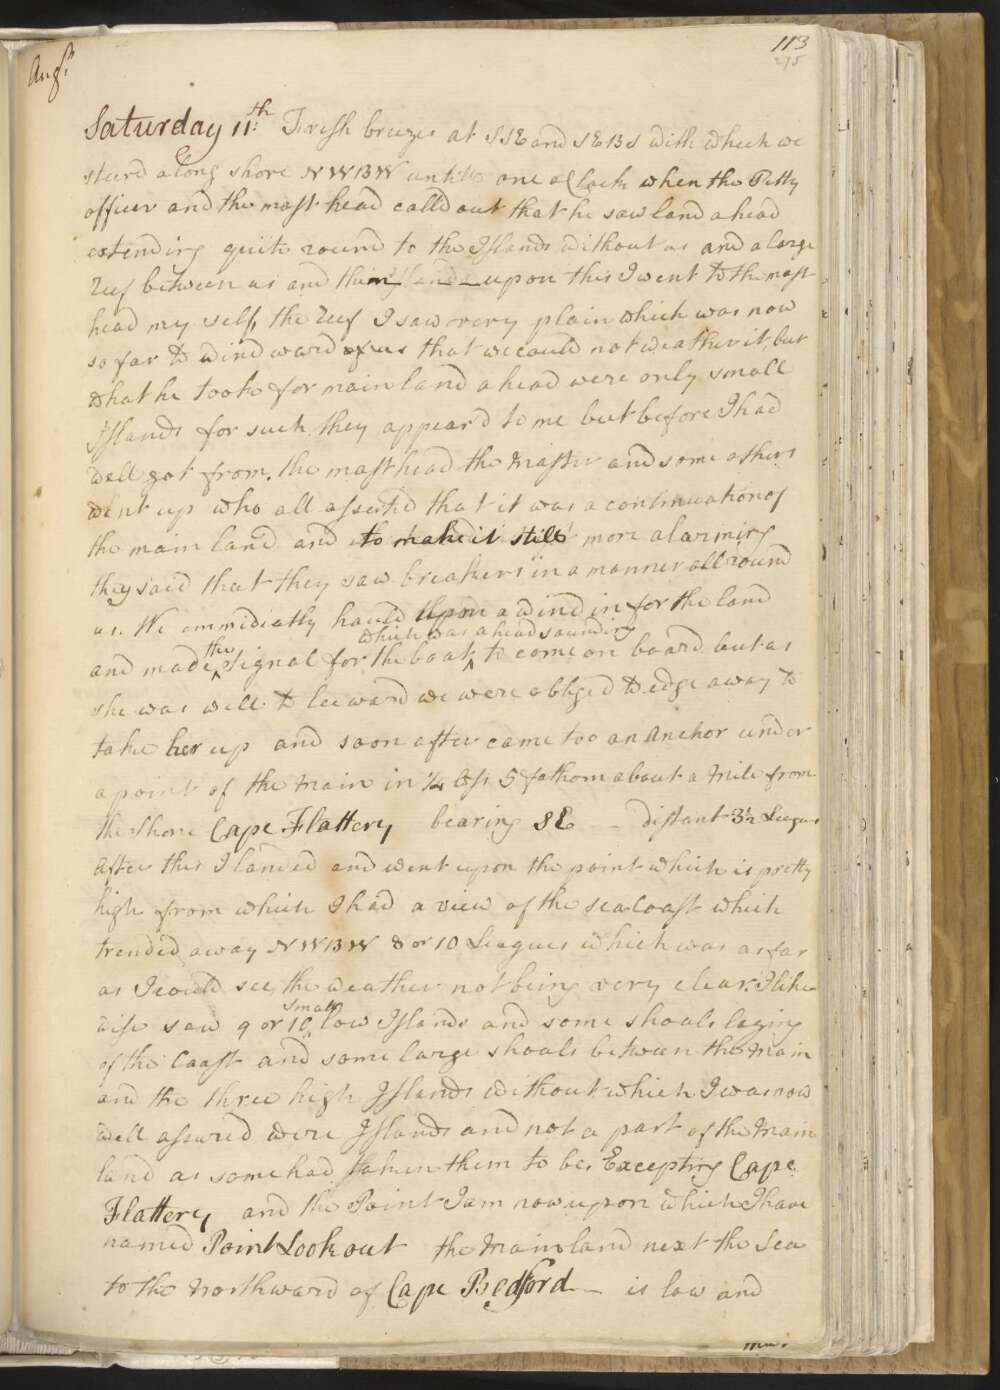 113
215
Augst
Saturday 11th. Fresh breezes at SSE and SEBS with which we
steer'd along shore NWBW untill one oClock when the Petty
officer and the mast head call'd out that he saw land ahead
extending quite round to the Islands without us and a large
reef between us and them upon this I went to the mast
head my self, the reef I saw very plain which was now
so far to windward of us that we could not weather it, but
what he took for main land ahead were only small
Islands for such they appear'd to me but before I had
well got from the mast head the Master and some others
went up who all asserted that it was a continuation of
the main land and to make it still more alarming
they said that they saw breakers in a manner all round
us. We immidiatly hauld upon a wind in for the land
which was ahead sounding
and made the Signal for the boat to come on board but as
she was well to leeward we were obliged to edge away to
take her up and soon after came too an Anchor under
a point of the Main in 1/4 less 5 fathom about a Mile from
the Shore Cape Flattery bearing SE - distant 3½ Leagues
After this I landed and went upon the point which is pretty
high from which I had a view of the sea Coast which
trended away NWBW 8 or 10 Leagues which was as far
as I could see the weather not being very clear. I like
wise saw 9 or 10 small low Islands and some shoals laying
of the Coast and some large shoals between the Main
and the three high Islands without which I was now
well assured were Islands and not a part of the Main
land as some had taken them to be. Excepting Cape
Flattery and the Point I am now upon which I have
named Point Lookout the Main land next the Sea
to the Northward of Cape Bedford - is low and